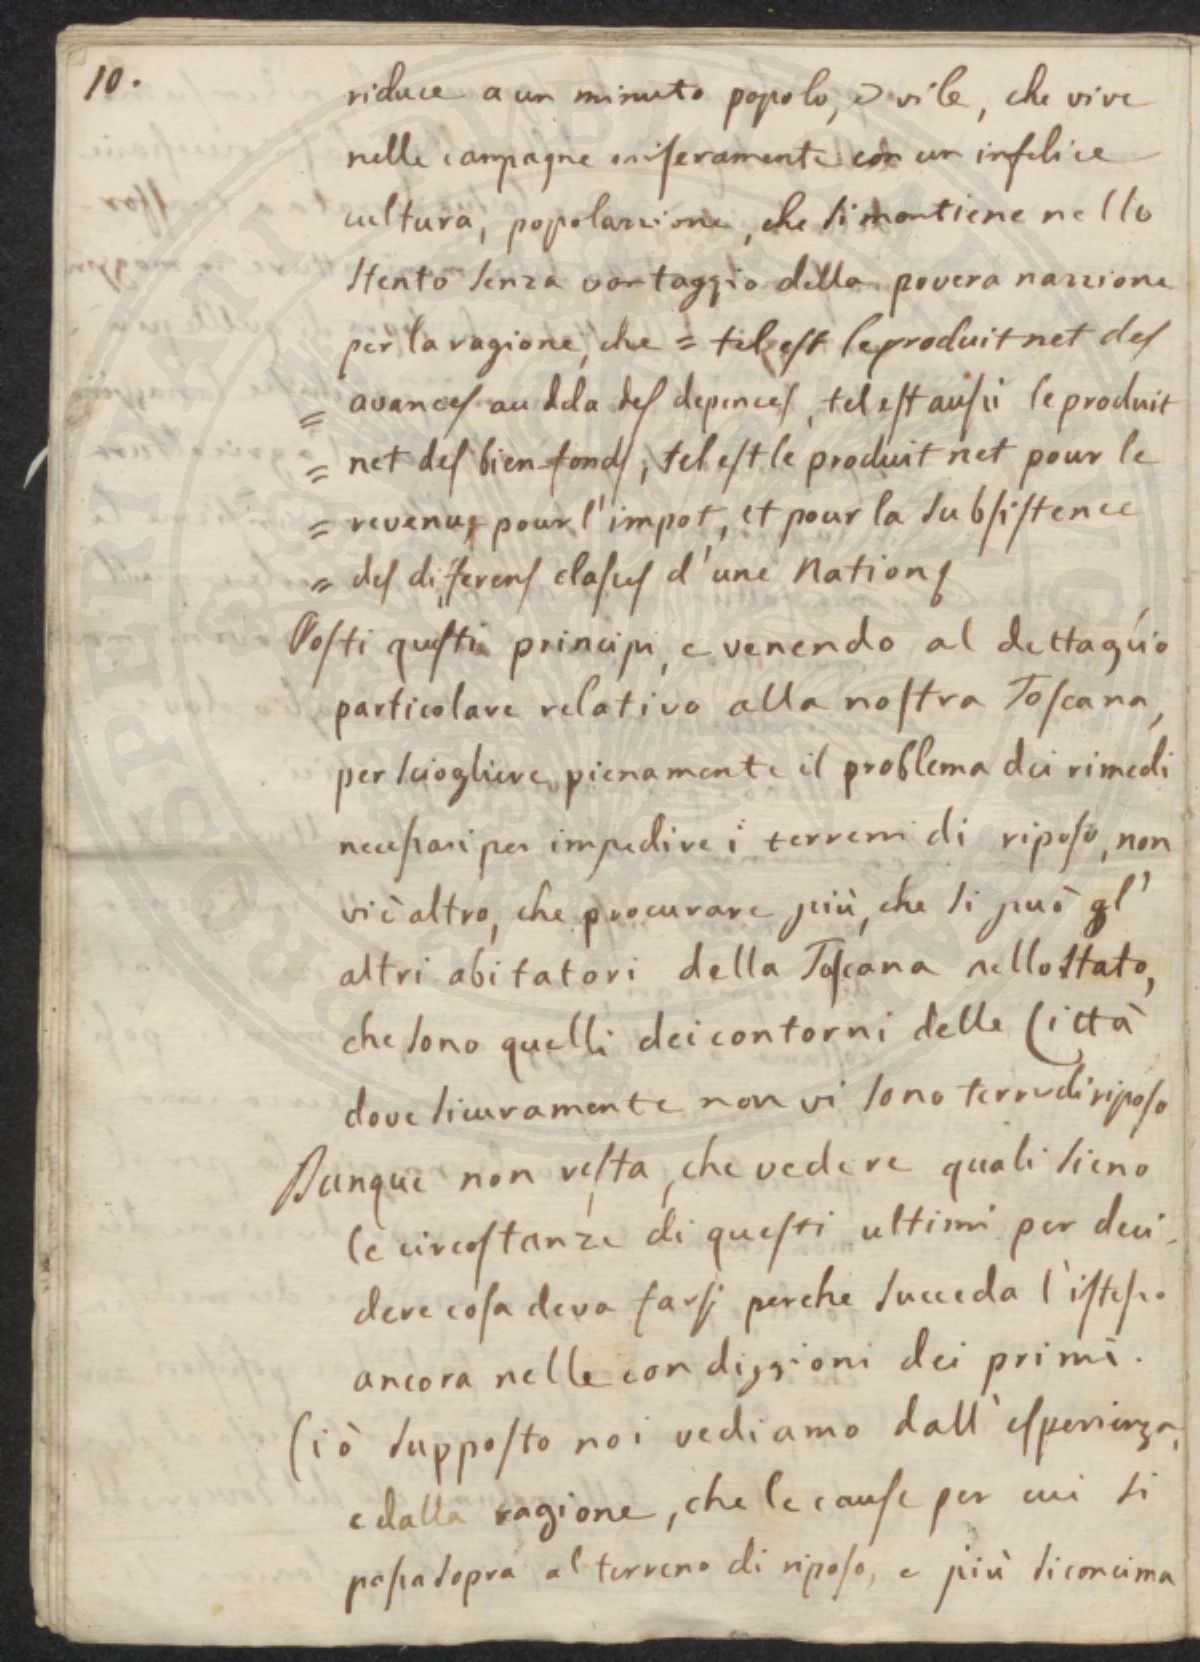 10.
riduce a un minuto popolo, e vile, che vive
nelle campagne miseramente con un infelice
cultura, popolazzione, che si mantiene nello
stento senza vantaggio della povera nazzione
per la ragione, che = tel est le produit net des
= avances au dela des depences, tel est aussi le produit
= net des bien-fonds, tel est le produit net pour le
= revenu, pour l'impot, et pour la subsistence
= des diferens classes d'une Nation,
Posti questi principi, e venendo al dettaglio
particolare relativo alla nostra Toscana,
per sciogliere pienamente il problema dei rimedi
necessari per impedire i terreni di riposo, non
vi è altro, che procurare più, che si può gl'
altri abitatori della Toscana nello stato,
che sono quelli dei contorni delle Città
dove sicuramente non vi sono terre di riposo
Dunque non resta, che vedere quali sieno
le circostanze di questi ultimi per deci-
dere cosa deva farsi perche succeda l'istesso
ancora nelle condizzioni dei primi.
Ciò supposto noi vediamo dall'esperienza,
e dalla ragione, che le cause per cui si
passa sopra al terreno di riposo, e più si concima
PROSPERITATI PUBLICAE AUGENDAE